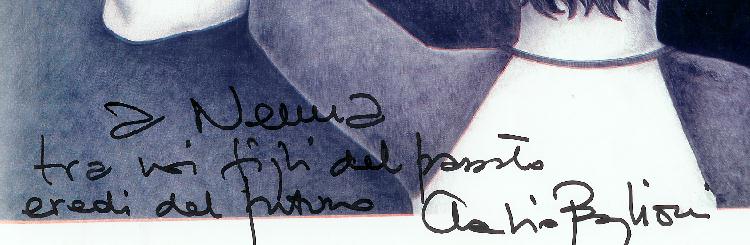 a Nemma
tra noi figli del passato
eredi del futuro Claudio Baglioni